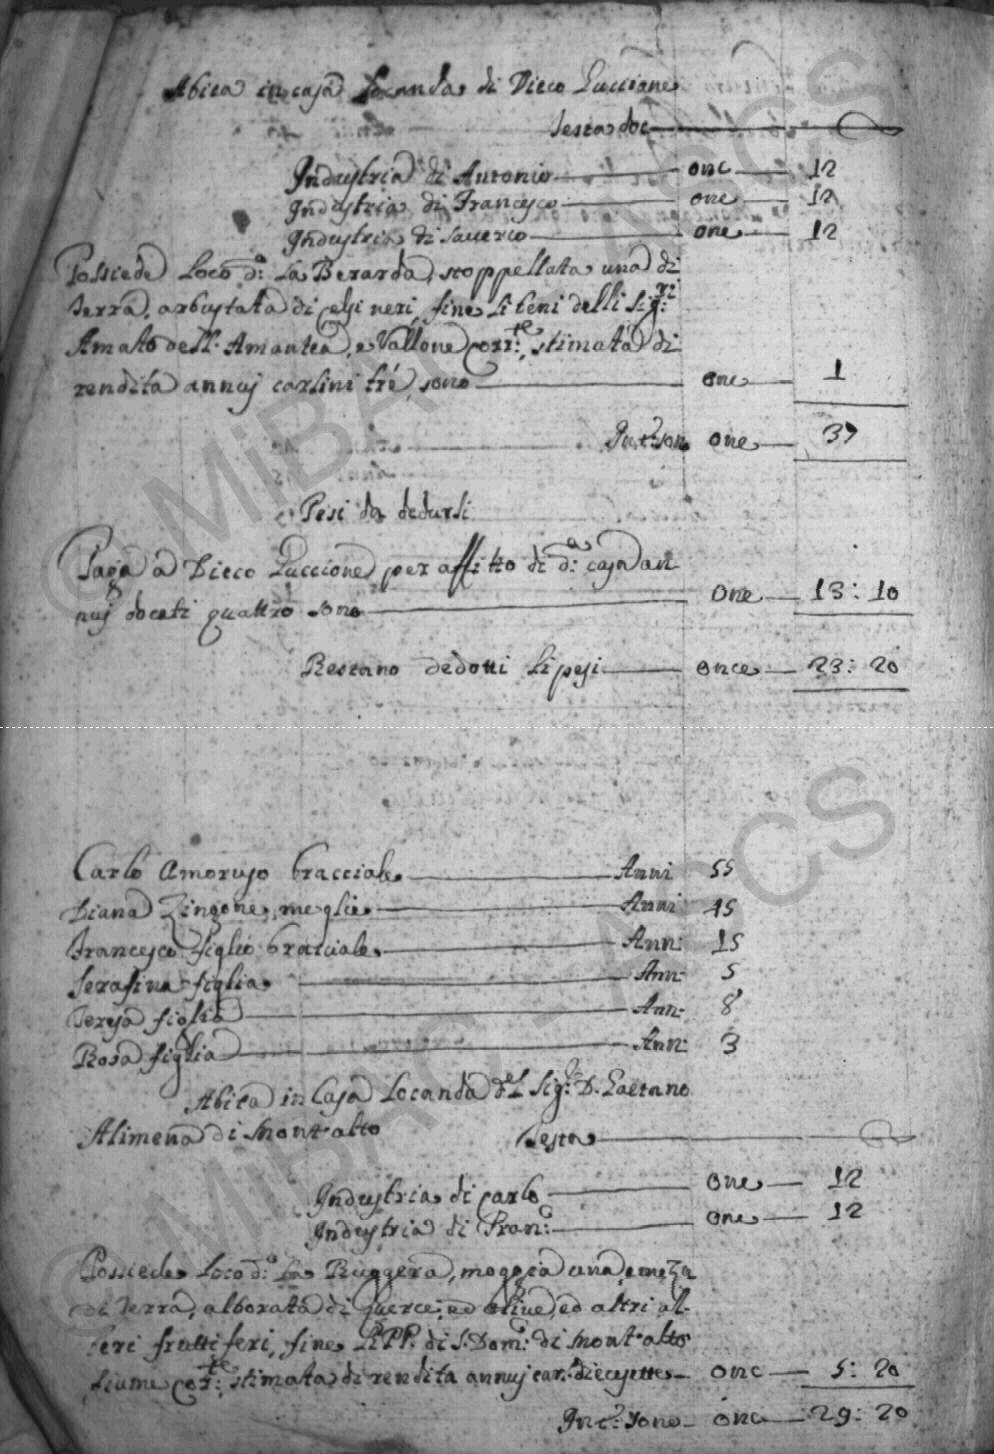 Abita in casa Locanda di Dieco Puccione
Testa doc
Industria di Antonio onc 12
Industria di Francesco onc 12
Industria di Saverio onc 12
Possiede Loco d:o La Berarda, stoppellata una di
terra, arbustata di celsi neri, fine li beni delli Sig:ri
Amato dell' Amantea, e Vallone corr:te, stimata di
rendita annuj carlini tré, sono onc 1
In t: son onc 37
Pesi da dedursi
Paga a Dieco Puccione per affitto di d:a casa an
nuj docati quattro sono onc 13: 10
Restano dedotti li pesi once 23: 20
Carlo Amoruso bracciale Anni 55
Diana Zingone, moglie Anni 45
Francesco figlio bracciale Ann: 15
Serafina figlia Ann: 5
Teresa figlia Ann: 8
Rosa figlia Ann: 3
Abita in Casa Locanda del Sig:r D. Gaetano
Alimena di Montalto Testa
Industria di Carlo onc 12
Industria di Fran:co onc 12
Possiede Loco d:o La Ruggera, moggia una, e meza
di terra, alborata di querce, ed olive, ed altri al-
beri fruttiferi, fine li PP. di S. Dom:co di Montalto
fiume cor:te, stimata di rendita annuj car: diecesette onc 5: 20
In t: sono onc 29: 20
© MiBAC - ASCS
© MiBAC - ASCS